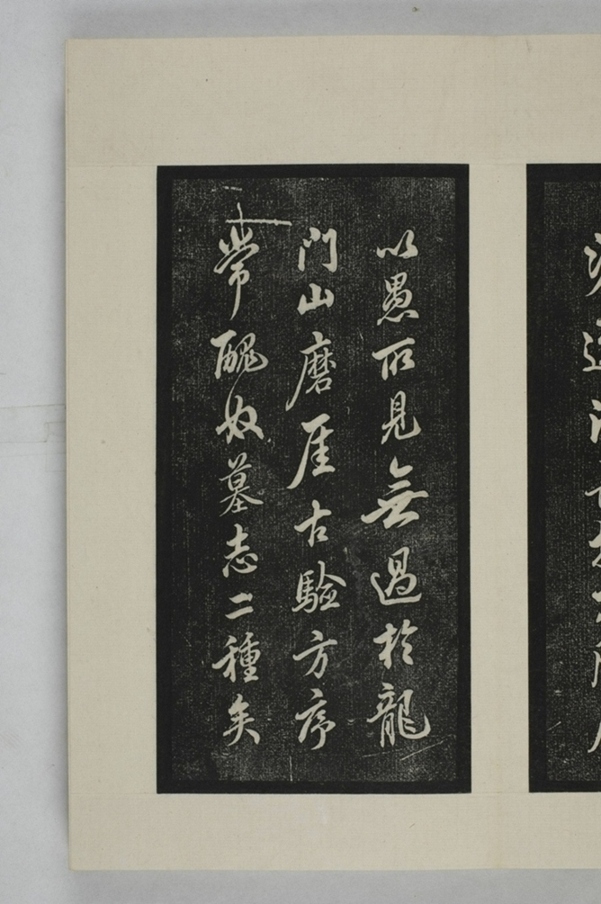 以愚所見無過於龍
門山磨厓古驗方序
常醜奴墓志二種矣